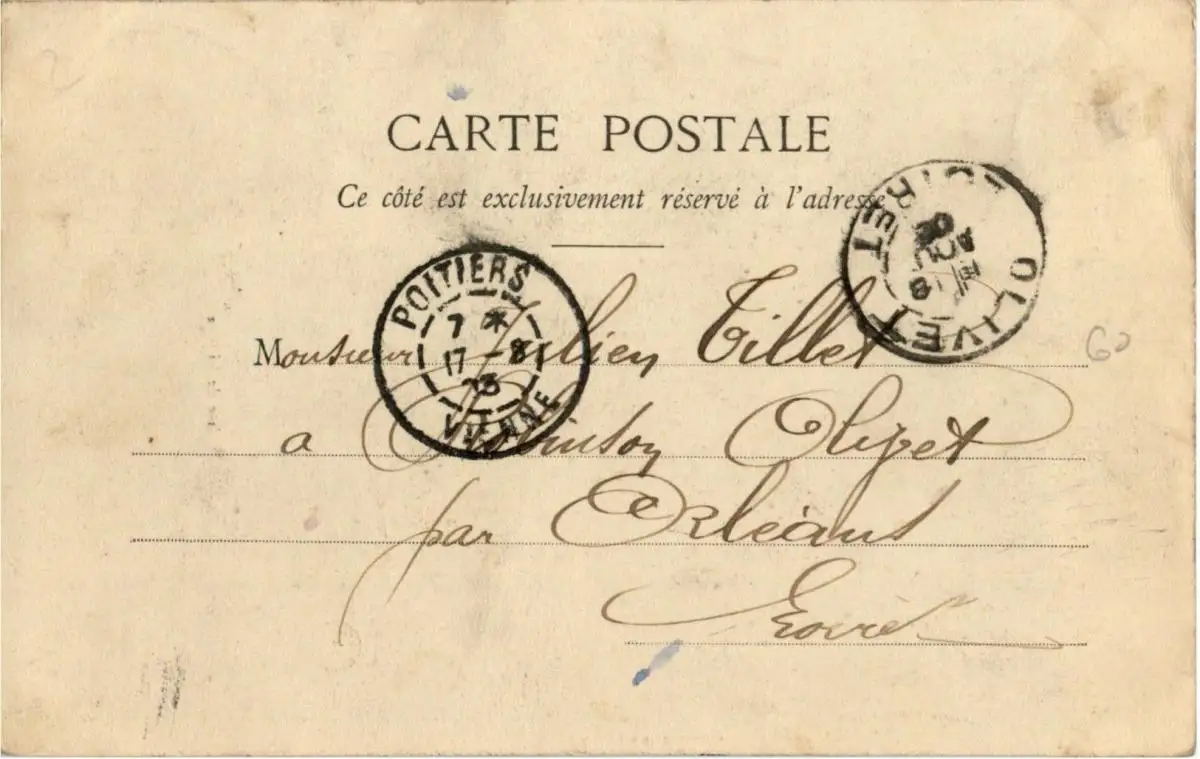 CARTE POSTALE
Ce côté est exclusivement réservé à l'adresse
OLIVET
LOIRET
POITIERS
7 *
17 - 8
03
VIENNE
Monsieur Julien Tillet
a Robinson Olivet
par Orléans
Loiret
60